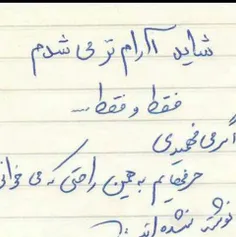 شاید آرام تر می شدم
فقط و فقط...
اگر می فهمیدی
حرفهایم به همین راحتی که می خوانی
نوشته نشده اند